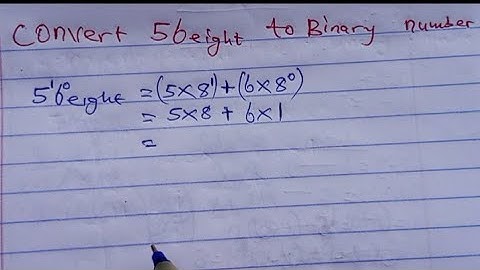 Convert 56eight to Binary number
5¹6⁰eight = (5×8¹)+(6×8⁰)
= 5×8 + 6×1
=